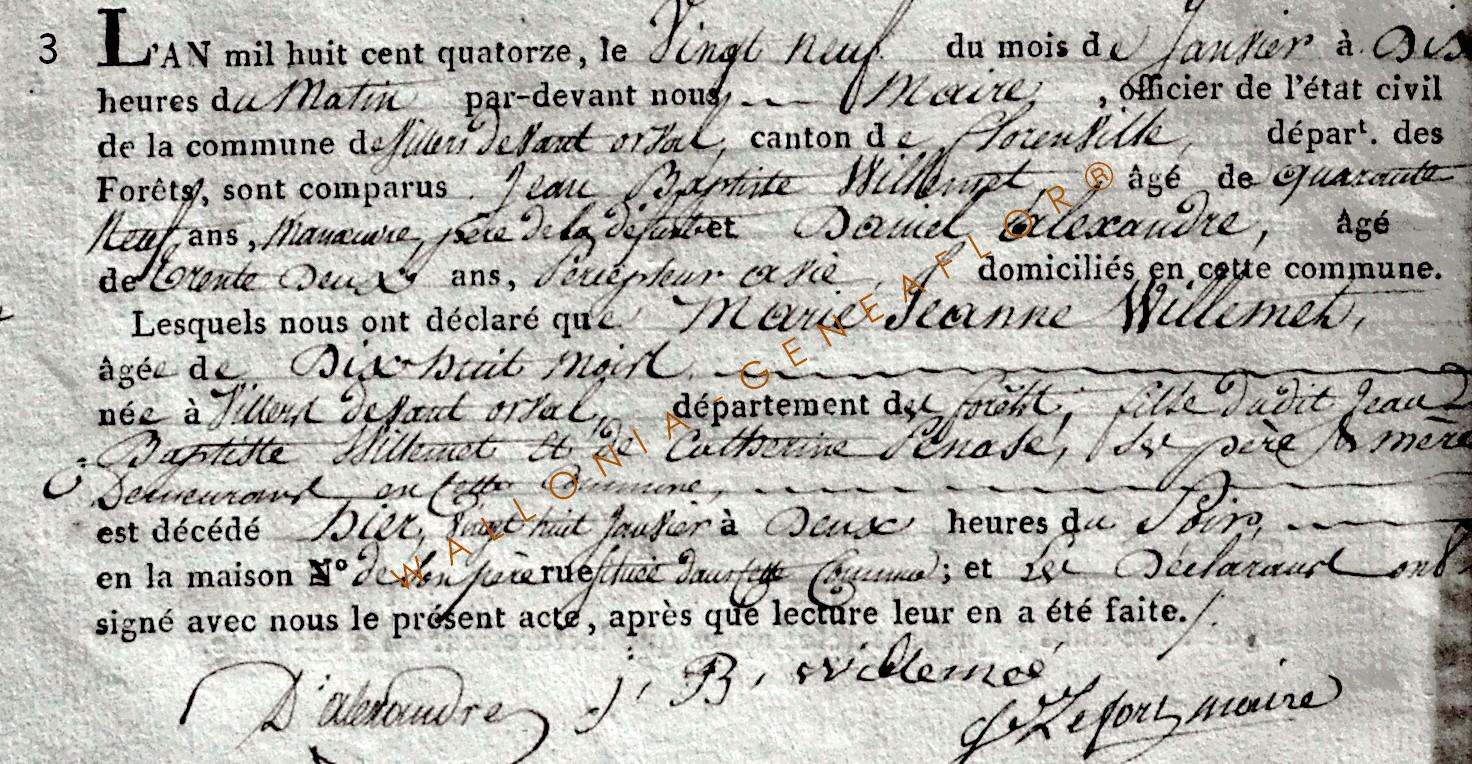 3 L'AN mil huit cent quatorze, le Vingt neuf du mois de Janvier à Dix
heures du Matin par-devant nous, maire, officier de l'état civil
de la commune de Villers devant orval, canton de florenville, dépar<sup>t</sup>. des
Forêts, sont comparus Jean Baptiste Willemet, âgé de quarante
Neuf ans, Manœuvre, père de la défunte et Daniel alexandre, âgé
de trente Deux ans, percepteur domiciliés en cette commune.
Lesquels nous ont déclaré que Marie Jeanne Willemet,
âgée de Dix huit mois
née à Villers devant orval, département des forêts, fille dudit Jean
Baptiste Willemet et de Catherine ses père & mère
Demeurant en Cette Commune,
est décédé hier, vingt huit Janvier à Deux heures du Soir,
en la maison N° de son père rue située dans cette Commune; et les Déclarants ont
signé avec nous le présent acte, après que lecture leur en a été faite.
D'alexandre J. B. Willemet
Lefort, maire
WALLONIA-GENEAFLOR®